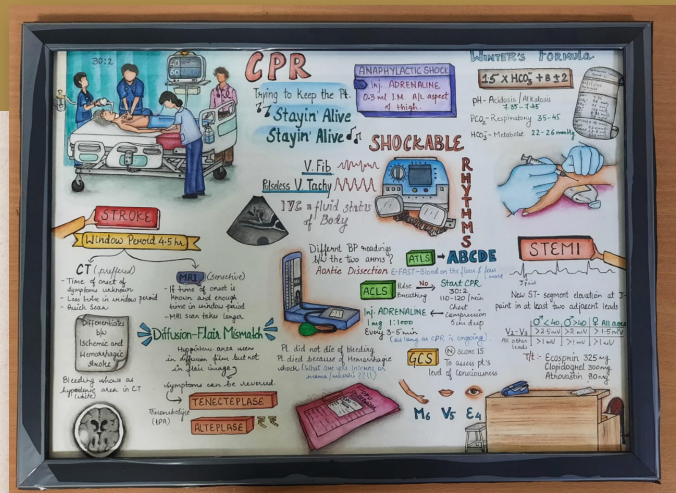 30:2
CPR
Trying to keep the Pt.
Stayin' Alive
Stayin' Alive
ANAPHYLACTIC SHOCK
Inj. ADRENALINE
0.3 ml I.M A/L aspect
of thigh.
WINTER'S FORMULA
1.5 X HCO3 + 8 ± 2
pH - Acidosis / Alkalosis
7.35 - 7.45
PCO2 - Respiratory 35-45
HCO3 - Metabolic 22-26
SHOCKABLE
RHYTHMS
V. Fib
Pulseless V. Tachy
IVC = fluid status
of Body
STROKE
Window Peroid 4.5 hr
CT (preffered)
- Time of onset of
symptoms unknown
- Less time in window peroid
- Quick Scan
Differentiates
b/w
Ischemic and
Hemorrhagic
stroke
Bleeding shows as
area in CT
(white)
MRI (sensitive)
- If time of onset is
known and enough
time in window peroid
- MRI scan takes longer
Diffusion-Flair Mismatch
Happens area seen
in diffusion film but not
in flair image
Symptoms can be reversed.
Thrombolysis
(tPA)
TENECTEPLASE
ALTEPLASE
Different BP readings
b/w the two arms?
Aortic Dissection
ATLS → ABCDE
E-FAST - Blood on the floor & four more
ACLS
Pulse No
Breathing
Start CPR
30:2
110-120/min
Chest
compression
5cm deep
Inj. ADRENALINE
1mg 1:1000
Every 3-5 min
(as long as CPR is ongoing)
Pt. did not die of bleeding
Pt died because of Hemorrhagic
shock
GCS
Score 15
To assess pt's
level of consciousness
M6 V5 E4
STEMI
J point
New ST-segment elevation at J-
point in at least two adjacent leads
♂ <40 ♂ >40 ♀ All ages
V2-V3 >2.5mV >2 mV >1.5mV
All other
leads >1mV >1mV >1mV
T/t :- Ecosprin 325 mg
Clopidogrel 300mg
Atrovastin 80mg